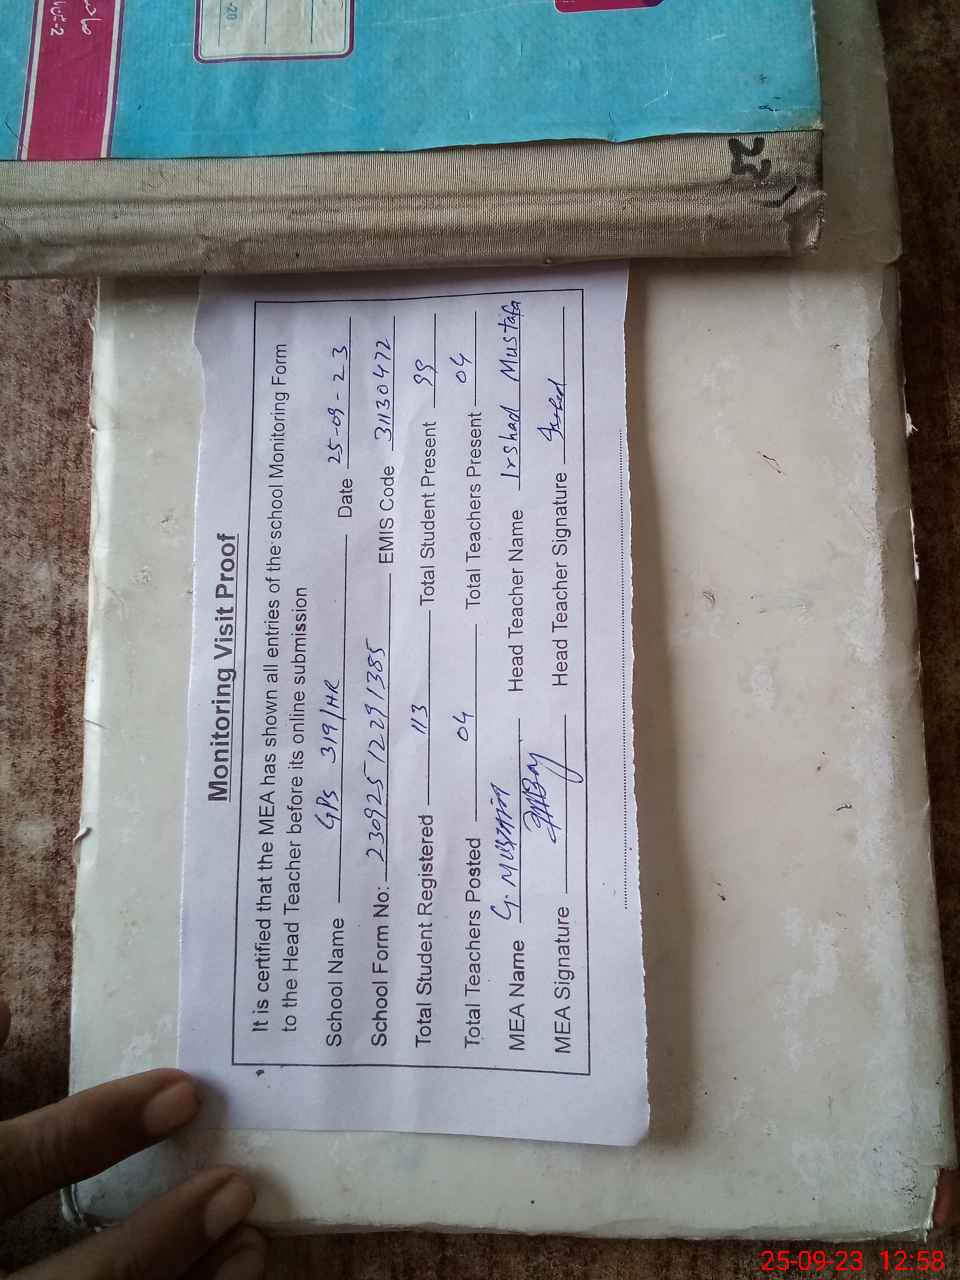 -20
25
Monitoring Visit Proof
It is certified that the MEA has shown all entries of the school Monitoring Form
to the Head Teacher before its online submission
School Name GPS 319/HR Date 25-09-23
School Form No: 230925 1229 1385 EMIS Code 31130472
Total Student Registered 113 Total Student Present 99
Total Teachers Posted 04 Total Teachers Present 04
MEA Name G. Mustafa Head Teacher Name Irshad Mustafa
MEA Signature Head Teacher Signature Irshad
25-09-23 12:58